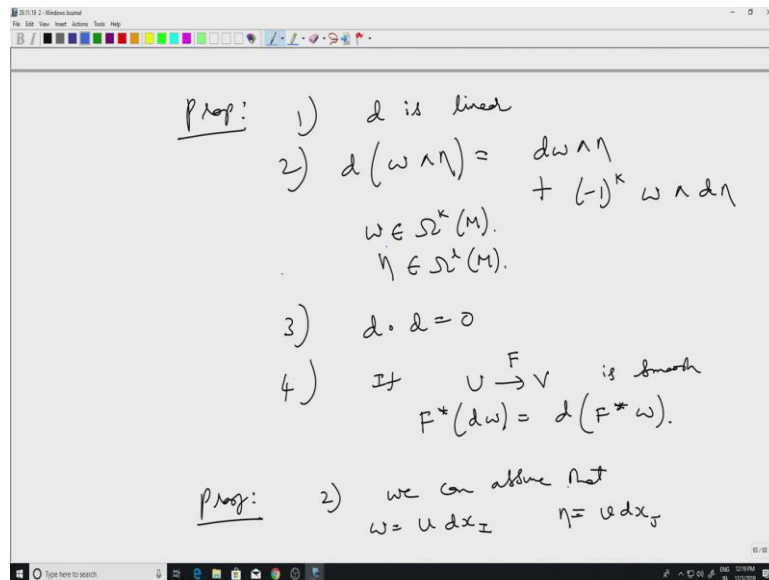 28.11.18 2 - Windows Journal
File Edit View Insert Actions Tools Help
Prop: 1) d is lined
2) d(ω∧η) = dω∧η
+ (-1)^k ω∧dη
ω ∈ Ω^k(M).
η ∈ Ω^l(M).
3) d∘d = 0
4) If U →^F V is smooth
F*(dω) = d(F*ω).
Proof: 2) we can assume that
ω = u dx_I η = v dx_J
Type here to search
ENG 12:19 PM
IN